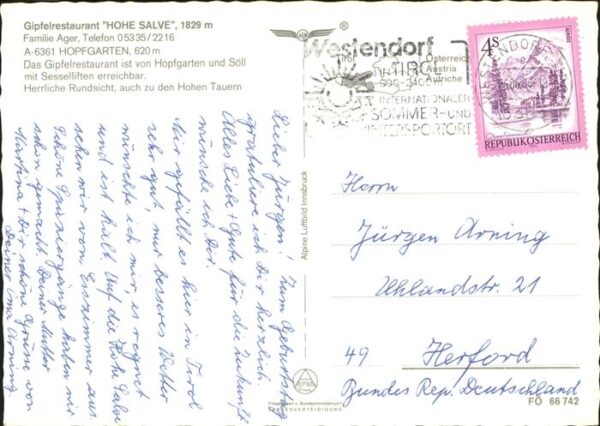 Gipfelrestaurant "HOHE SALVE", 1829 m
Familie Ager, Telefon 05335/2216
A-6361 HOPFGARTEN, 620 m
Das Gipfelrestaurant ist von Hopfgarten und Söll
mit Sesselliften erreichbar.
Herrliche Rundsicht, auch zu den Hohen Tauern
Lieber Jürgen! Zum Geburtstag
gratuliere ich Dir herzlich.
Alles Liebe + Gute für die Zukunft
wünsche ich Dir.
Mir gefällt es hier in Tirol
sehr gut, nur besseres Wetter
wünschte ich mir es regnet
und ist kalt. Auf die Hohe Salve
sehen wir vom Esszimmer aus.
Schöne Spaziergänge haben wir
schon gemacht. Deiner Mutter
Martina + Dir schöne Grüsse von
Deiner Oma Arning
Alpine Luftbild Innsbruck
ALPINE
Freigegeben v. Bundesministerium f.
LANDESVERTEIDIGUNG
Westendorf
TIROL
INTERNATIONALER
SOMMER- UND
WINTERSPORTORT
Österreich
Austria
Autriche
WESTENDORF
4 S
REPUBLIK ÖSTERREICH
Herrn
Jürgen Arning
Uhlandstr. 21
49 Herford
Bundes Rep. Deutschland
FO 66 742